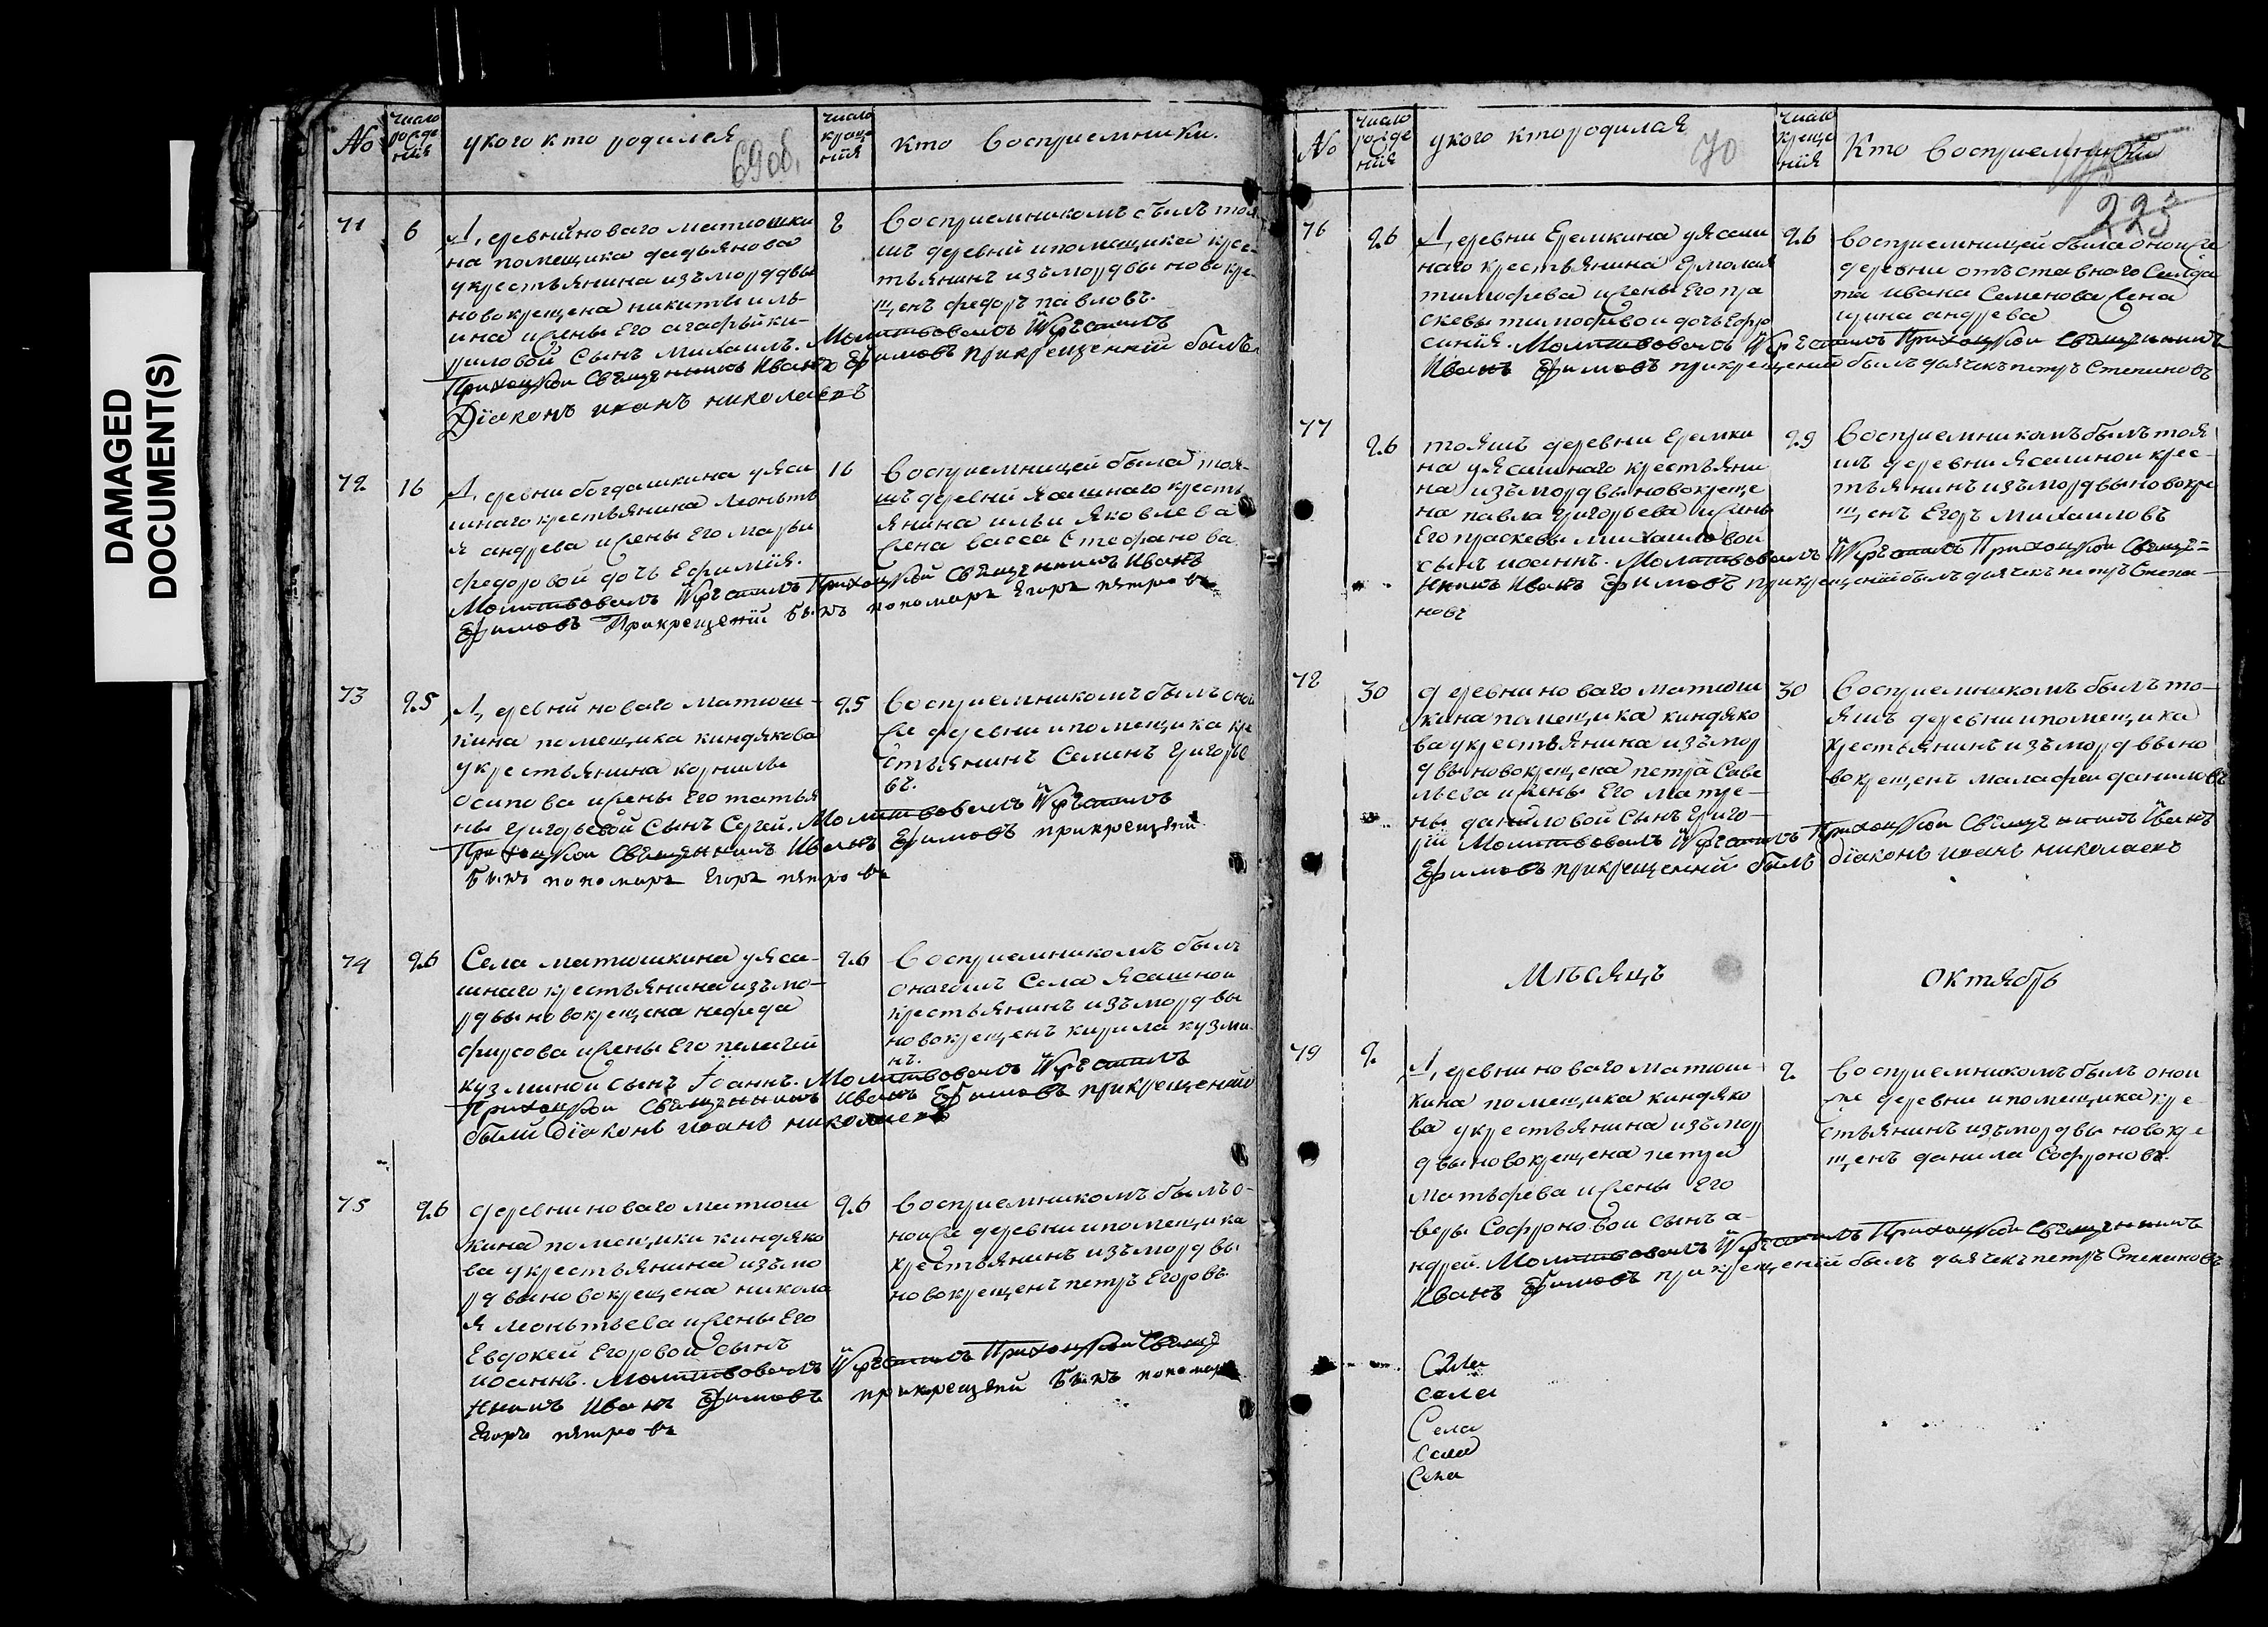 DAMAGED
DOCUMENT(S)
№
число рожде нія
укого кто родился
69 об.
число креще нія
кто восприемники.
71
6
Деревни новаго матюшки
на помещика дадьянова
у крестьянина изъ мордвы
новокрещена никиты иль-
ина и жены Его агафьи ки-
риловой Сынъ михаилъ. Молитвовалъ и крѣстилъ
Приходкой Священникъ Иванъ Ефимовъ при крещении былъ
Дїаконъ иванъ николаевъ
8
восприемникомъ былъ тоя
шъ деревни и помещика крес-
тьянинъ изъ мордвы новокре-
щенъ федоръ павловъ.
72
16
Деревни богдашкина у яса
шнаго крестьянина леонть
я андрева и жены Его марьи
федоровой дочь Ефимия.
Молитвовалъ и крѣстилъ Приходкой Священникъ Иванъ
Ефимовъ При крещении былъ пономарь Егоръ пѣтровъ
16
восприемницей была тоя-
шъ деревни ясашнаго кресть
янина ильи яковлева
жена васса Стефанова
73
25
Деревни новаго матюш-
кина помещика киндякова
у крестьянина корнилы
осипова и жены Его татья
ны григорьевой Сынъ Сергей. Молитвовалъ и крѣстилъ
Приходкой Священникъ Иванъ Ефимовъ при крещении
былъ пономарь Егоръ пѣтровъ
25
восприемникомъ былъ оной
же деревни и помещика кре
стьянинъ Семенъ григорье
въ.
74
26
Села матюшкина у яса-
шнаго крестьянина изъ мо-
рдвы новокрещена нефеда
фирсова и жены Его пелагеи
кузминой сынъ Іоаннъ. Молитвовалъ и крѣстилъ
Приходкой Священникъ Иванъ Ефимовъ при крещении
былъ дїаконъ иванъ николаевъ
26
восприемникомъ былъ
оногожъ Села ясашной
крестьянинъ изъ мордвы
новокрещенъ кирила кузми
нъ.
75
26
деревни новаго матюш
кина помещика киндяко
ва у крестьянина изъ мо
рдвы новокрещена никола
я леонтьева и жены Его
Евдокеи Егоровой сынъ
иоаннъ. Молитвовалъ и крѣстилъ Приходкой Свяще
нникъ Иванъ Ефимовъ при крещении былъ пономарь
Егоръ пѣтровъ
26
восприемникомъ былъ о-
ной же деревни и помещика
крестьянинъ изъ мордвы
новокрещенъ петръ Егоровъ
№
число рожде нія
укого кто родился
70
число креще нія
Кто восприемники
223
76
26
Деревни Еремкина у ясаш
наго крестьянина Ермолая
тимофева и жены Его пра
сковьи тимофевой дочь Ефро
синия. Молитвовалъ и крѣстилъ Приходкой Священникъ
Иванъ Ефимовъ при крещении былъ дьячекъ петръ Степановъ
26
восприемницей была оной же
деревни отъставнаго Салда
та ивана Семенова жена
ирина андрева
77
26
тояшъ деревни Еремки
на у ясашнаго крестьяни
на изъ мордвы новокреще
на павла григорьева и жены
Его прасковьи михаиловой
сынъ иоаннъ. Молитвовалъ и крѣстилъ Приходкой Свяще=
нникъ Иванъ Ефимовъ при крещении былъ дьячекъ петръ Степа-
новъ
29
восприемникомъ былъ тоя
шъ деревни ясашной крес-
тьянинъ изъ мордвы новокре
щенъ Егоръ михаиловъ
78
30
деревни новаго матюш
кина помещика киндяко
ва у крестьянина изъ мор
двы новокрещена петра Саве
льева и жены Его матре-
ны даниловой Сынъ григо-
рїи Молитвовалъ и крѣстилъ Приходкой Священникъ Иванъ
Ефимовъ при крещении былъ дїаконъ иванъ николаевъ
30
восприемникомъ былъ то-
яшъ деревни и помещика
крестьянинъ изъ мордвы но
вокрещенъ малафеи даниловъ
Мѣсяцъ
октябрь
79
2
Деревни новаго матюш
кина помещика киндяко
ва у крестьянина изъ мор
двы новокрещена петра
матвѣева и жены Его
веры Софроновой сынъ а-
ндрей. Молитвовалъ и крѣстилъ Приходкой Священникъ
Иванъ Ефимовъ при крещении былъ дьячекъ петръ Степановъ
2
восприемникомъ былъ оной
же деревни и помещика кре
стьянинъ изъ мордвы новокре
щенъ данила Софроновъ.
Села
села
Села
Села
Села